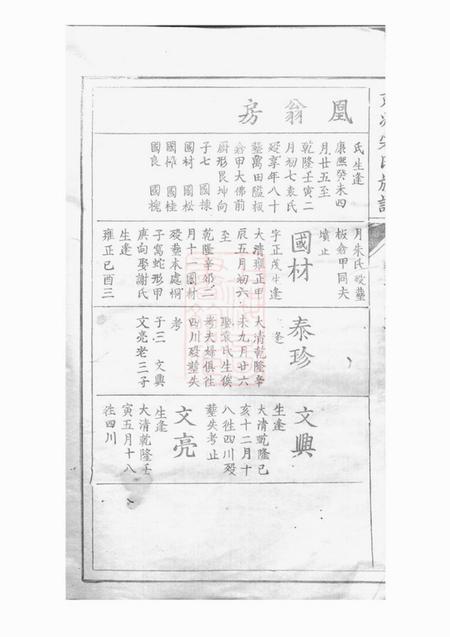 凰翁房
氏生逢
康熙癸未四
月廿五至
乾隆壬寅二
月初七袁氏
殁享年八十
塟萬田隘板
倉甲大佛前
廚形艮坤向
子七 國棟
國材 國松
國樑 國桂
國良 國槐
月朱氏殁塟
板倉甲同夫
墳止
國材
字正茂生逢
大清雍正甲
辰五月初六
至
乾隆辛卯二
月十一國材
殁塟本處桐
子窩蛇形甲
庚向娶謝氏
生逢
雍正己酉三
泰珍
生逢
大清乾隆辛
未九月廿六
娶袁氏生俟
考夫婦俱往
四川殁塟失
考
子三 文興
文亮老三子
文興
生逢
大清乾隆己
亥十二月十
八往四川殁
塟失考止
文亮
生逢
大清乾隆壬
寅五月十八
往四川